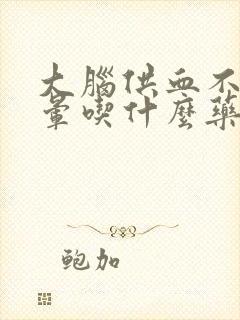 大腦供血不
暈喫什麼藥
鲍加